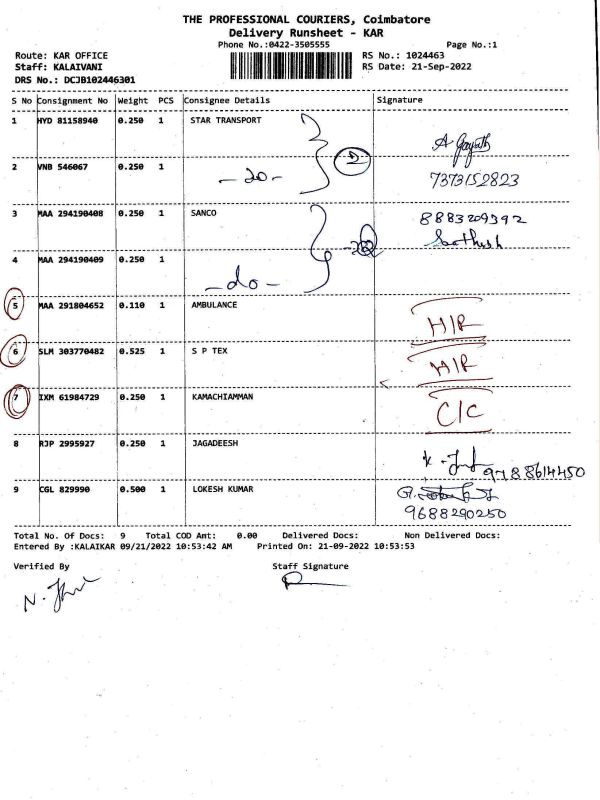 THE PROFESSIONAL COURIERS, Coimbatore
Delivery Runsheet - KAR
Phone No.:0422-3505555 Page No.:1
Route: KAR OFFICE RS No.: 1024463
Staff: KALAIVANI RS Date: 21-Sep-2022
DRS No.: DCJB102446301
S No Consignment No Weight PCS Consignee Details Signature
1 HYD 81158940 0.250 1 STAR TRANSPORT
2 VNB 546067 0.250 1 -do- 2 7373152823
3 MAA 294190408 0.250 1 SANCO 8883209392
4 MAA 294190409 0.250 1 -do-
5 MAA 291804652 0.110 1 AMBULANCE H/R
6 SLM 303770482 0.525 1 S P TEX H/R
7 IXM 61984729 0.250 1 KAMACHIAMMAN C/C
8 RJP 2995927 0.250 1 JAGADEESH 9788614450
9 CGL 829990 0.500 1 LOKESH KUMAR
9688290250
Total No. Of Docs: 9 Total COD Amt: 0.00 Delivered Docs: Non Delivered Docs:
Entered By :KALAIKAR 09/21/2022 10:53:42 AM Printed On: 21-09-2022 10:53:53
Verified By Staff Signature